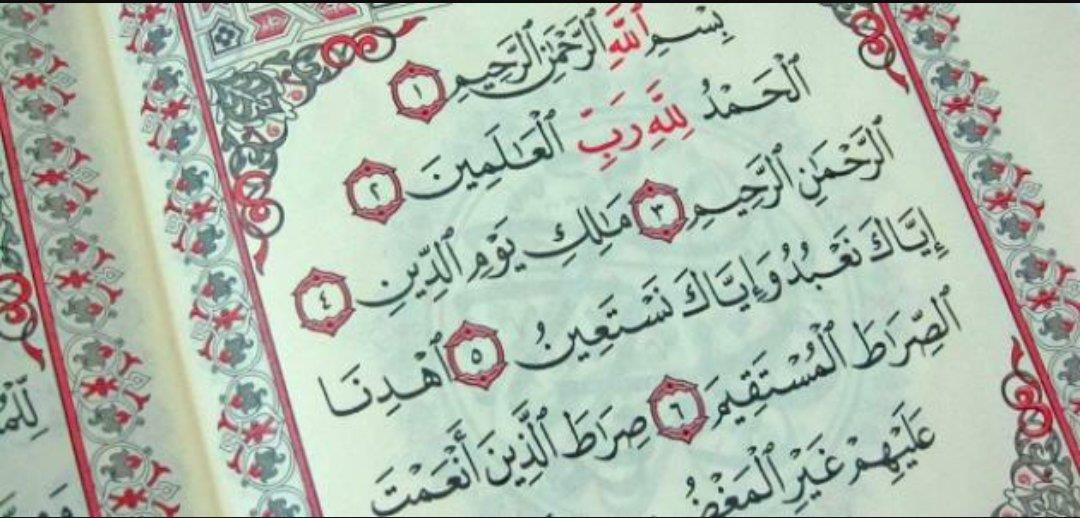 بِسْمِ ٱللَّهِ ٱلرَّحْمَٰنِ ٱلرَّحِيمِ ١
ٱلْحَمْدُ لِلَّهِ رَبِّ ٱلْعَٰلَمِينَ ٢
ٱلرَّحْمَٰنِ ٱلرَّحِيمِ ٣ مَٰلِكِ يَوْمِ ٱلدِّينِ ٤
إِيَّاكَ نَعْبُدُ وَإِيَّاكَ نَسْتَعِينُ ٥ ٱهْدِنَا
ٱلصِّرَٰطَ ٱلْمُسْتَقِيمَ ٦ صِرَٰطَ ٱلَّذِينَ أَنْعَمْتَ
عَلَيْهِمْ غَيْرِ